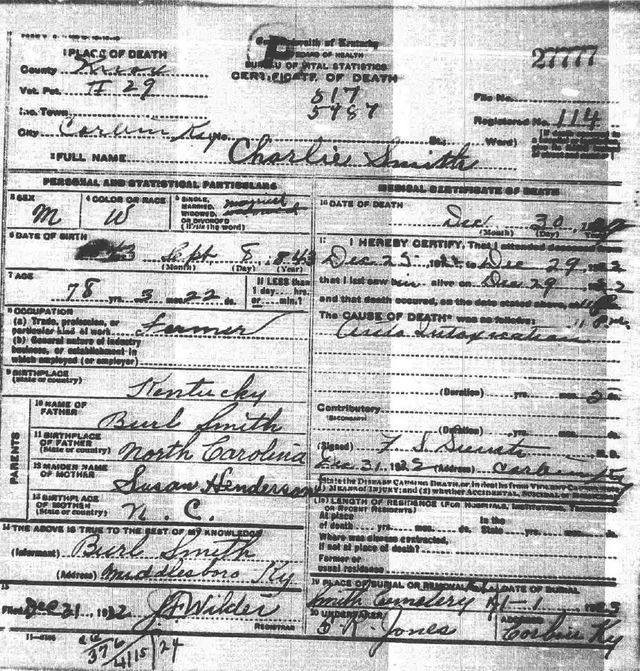 1 PLACE OF DEATH
County Knox
Vot. Pct. # 29
Inc. Town
City Corbin Ky No. St.; Ward)
Commonwealth of Kentucky
BOARD OF HEALTH
BUREAU OF VITAL STATISTICS
CERTIFICATE OF DEATH
517
5987
27777
File No.
Registered No. 114
2 FULL NAME Charlie Smith
PERSONAL AND STATISTICAL PARTICULARS
3 SEX
M
4 COLOR OR RACE
W
5 SINGLE,
MARRIED,
WIDOWED,
OR DIVORCED
(Write the word)
6 DATE OF BIRTH
Sept 8 843
(Month) (Day) (Year)
7 AGE
78 yrs. 3 mos. 22 ds.
If LESS than
1 day....hrs.
or....min.?
8 OCCUPATION
(a) Trade, profession, or
particular kind of work Farmer
(b) General nature of industry
business, or establishment in
which employed (or employer)
9 BIRTHPLACE
(State or country) Kentucky
PARENTS
10 NAME OF
FATHER Burl Smith
11 BIRTHPLACE
OF FATHER
(State or country) North Carolina
12 MAIDEN NAME
OF MOTHER Susan Henderson
13 BIRTHPLACE
OF MOTHER
(State or country) N. C.
14 THE ABOVE IS TRUE TO THE BEST OF MY KNOWLEDGE
(Informant) Burl Smith
(Address) Middlesboro Ky
15
Filed Dec 31, 1922 J F Wilder
REGISTRAR
MEDICAL CERTIFICATE OF DEATH
16 DATE OF DEATH
Dec 30
(Month) (Day)
17 I HEREBY CERTIFY, That I attended deceased
Dec 25 1922 to Dec 29 1922
that I last saw him alive on Dec 29
and that death occurred, on the date stated
The CAUSE OF DEATH* was as follows:
Auto Intoxication
(Duration) yrs. mos.
Contributory
(SECONDARY)
(Duration) yrs. mos.
(Signed) M. D.
Dec 31 1922 (Address) Corbin Ky
18 LENGTH OF RESIDENCE (FOR HOSPITALS, INSTITUTIONS,
OR RECENT RESIDENTS)
At place In the
of death yrs. mos. ds. State yrs. mos.
Where was disease contracted,
if not at place of death?
Former or
usual residence
19 PLACE OF BURIAL OR REMOVAL DATE OF BURIAL
Smith Cemetery 1-1
20 UNDERTAKER ADDRESS
Jones Corbin Ky
11-3196
376
4115 24